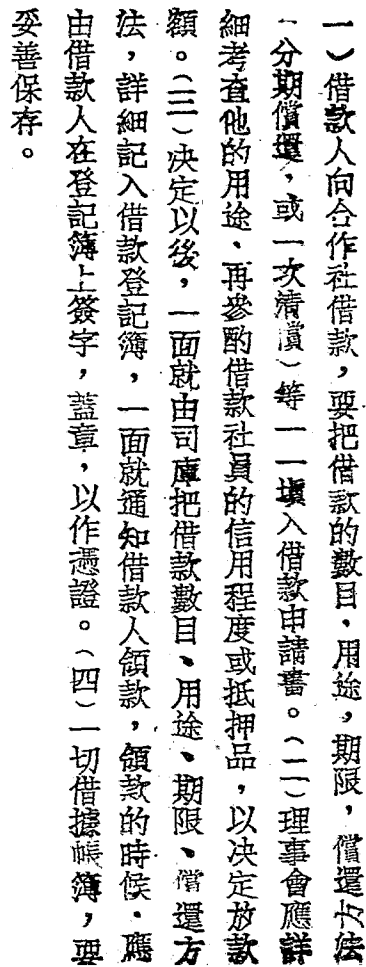 一）借款人向合作社借款，要把借款的數目、用途，期限，償還方法
（分期償還，或一次淸償）等一一塡入借款申請書。（二）理事會應詳
細考查他的用途、再參酌借款社員的信用程度或抵押品，以决定放款
額。（三）决定以後，一面就由司庫把借款數目、用途、期限、償還方
法，詳細記入借款登記簿，一面就通知借款人領款，領款的時候．應
由借款人在登記簿上簽字，蓋章，以作憑證。（四）一切借據帳簿，要
妥善保存。